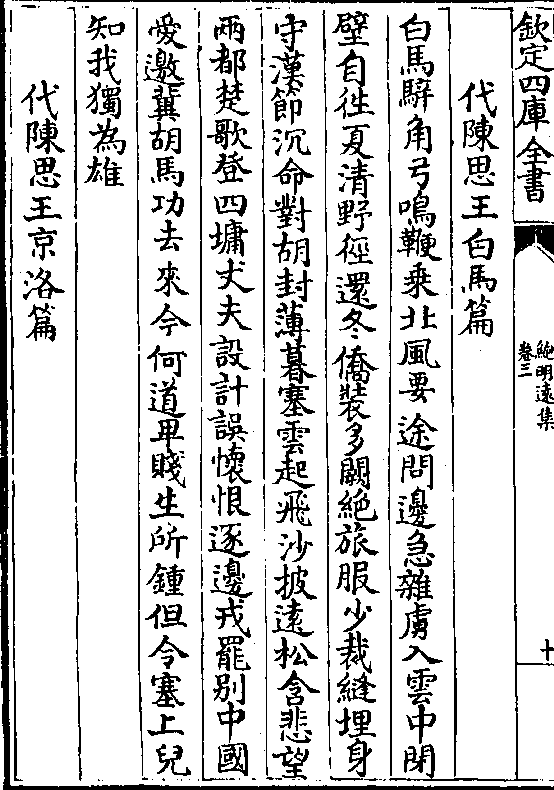 欽定四庫全書
鮑明遠集
卷三
十
代陳思王白馬篇
白馬騂角弓鳴鞭乗北風要途問邊急雜虜入雲中閉
壁自徃夏清野徑還冬僑裝多闕絶旅服少裁縫埋身
守漢節沉命對胡封薄暮塞雲起飛沙披遠松含悲望
兩都楚歌登四墉丈夫設計誤懷恨逐邊戎罷别中國
愛邀冀胡馬功去來今何道卑賤生所鍾但令塞上兒
知我獨為雄
代陳思王京洛篇